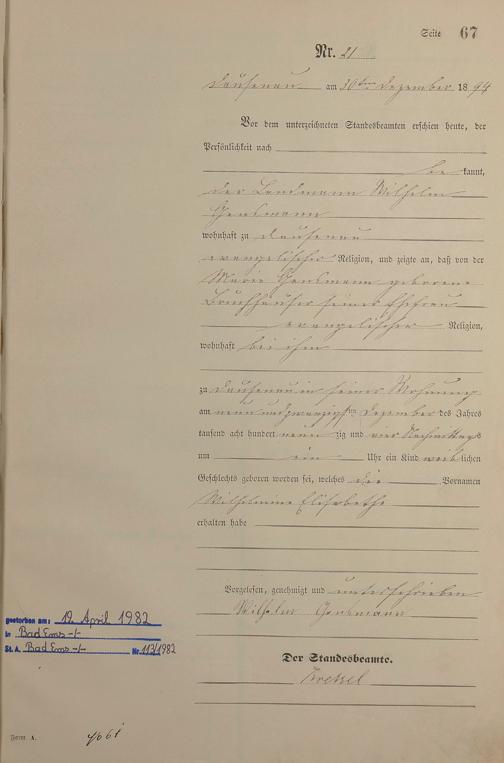 Seite 67
Nr. 21
Dausenau am 30ten Dezember 1894
Vor dem unterzeichneten Standesbeamten erschien heute, der
Persönlichkeit nach
bekannt,
der Landmann Wilhelm
wohnhaft zu Dausenau
evangelischer Religion, und zeigte an, daß von der
Marie geborene
seiner Ehefrau
evangelischer Religion,
wohnhaft bei ihm
zu Dausenau in seiner Wohnung
am neun und zwanzigsten Dezember des Jahres
tausend acht hundert neunzig und vier Nachmittags
um ein Uhr ein Kind weiblichen
Geschlechts geboren worden sei, welches die Vornamen
Wilhelmine Elisabethe
erhalten habe
Vorgelesen, genehmigt und unterschrieben
Wilhelm
Der Standesbeamte.
gestorben am: 12. April 1982
in Bad Ems -/-
St. A. Bad Ems -/- Nr. 113/1982
Form. A.